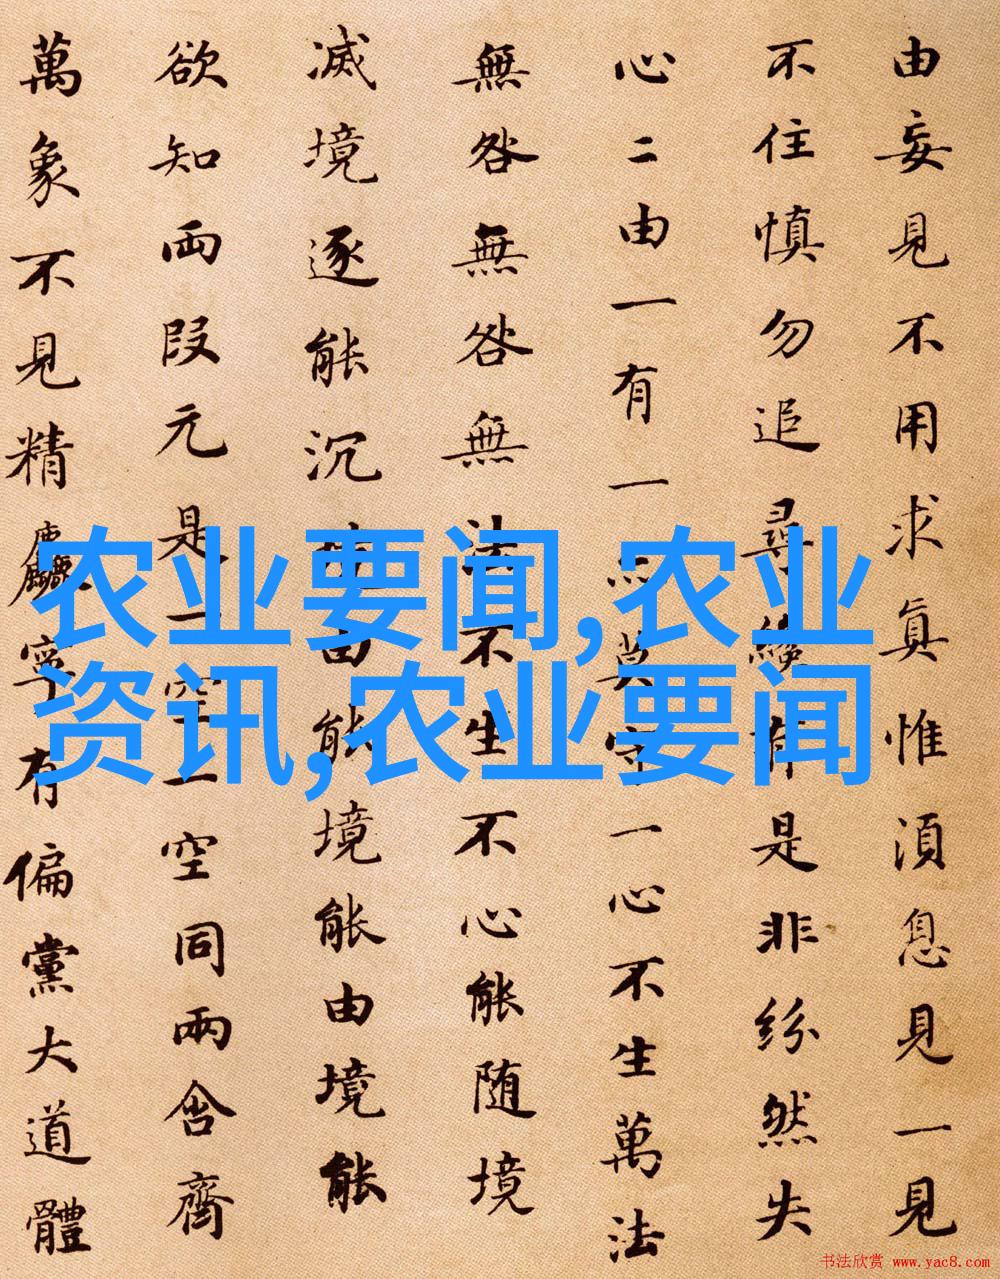 由妄見不用求眞惟須息見一見
不住慎勿追尋纔有是非紛然失
心二由一有一亦莫守一心不生萬法
無咎無咎無法不生不心能随境
滅境逐能沉境由能境能由境能
欲知两段元是一空一空同兩含齊
萬象不見精麤寧有偏黨大道體
农业要闻,农业
资讯,农业要闻
书法欣赏 www.yac8.com